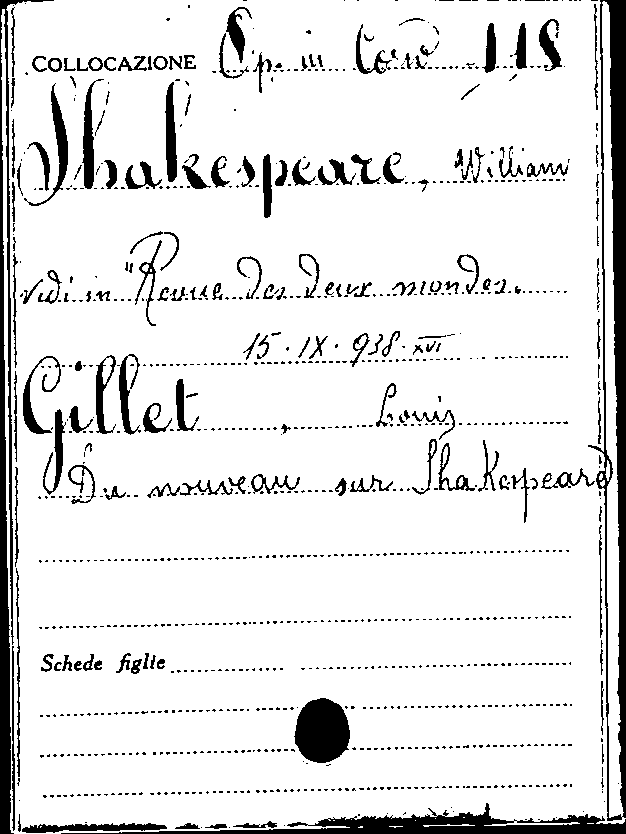 COLLOCAZIONE Op. in Cons 118
Shakespeare, William
vedi in "Revue des deux mondes.
15 · IX · 938 · XVI
Gillet, Louis
Du nouveau sur Shakespeare
Schede figlie